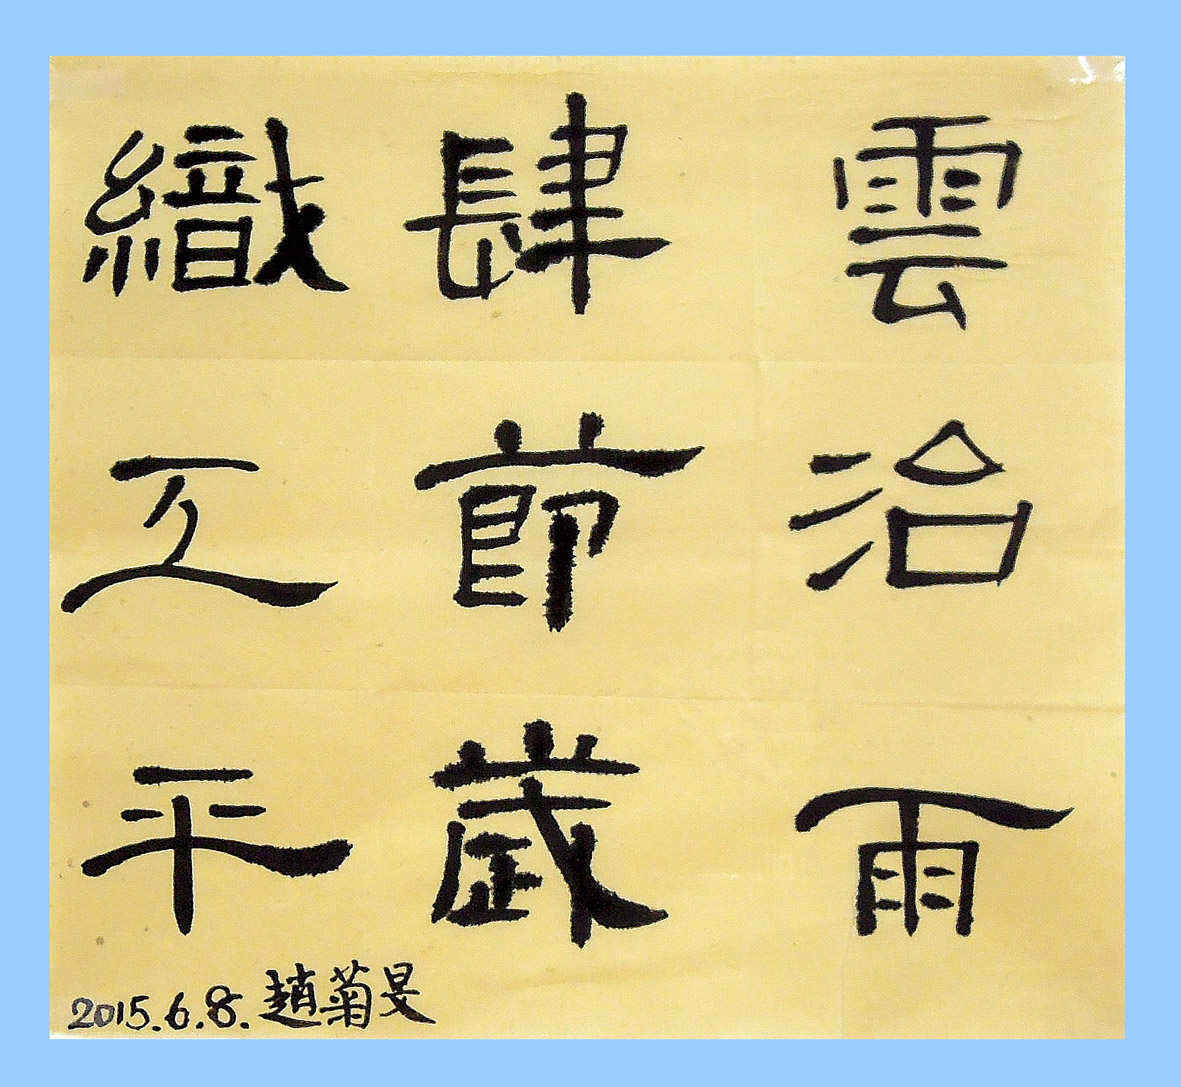 雲治雨
肆節歲
織工平
2015.6.8.趙菊旻